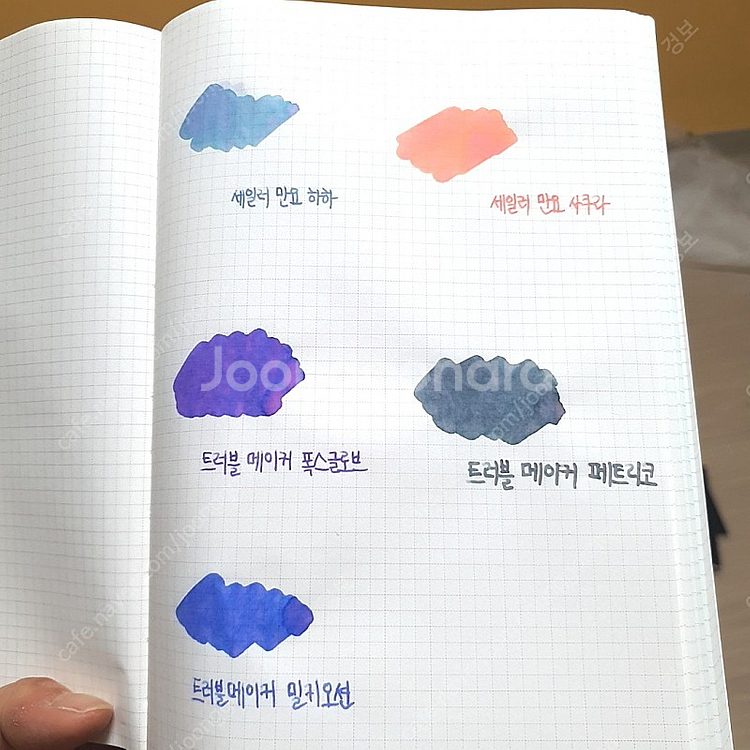 세일러 만요 하하
세일러 만요 사쿠라
Joonggonara
트러블 메이커 폭스글로브
트러블 메이커 페트리코
트러블메이커 밀키오션